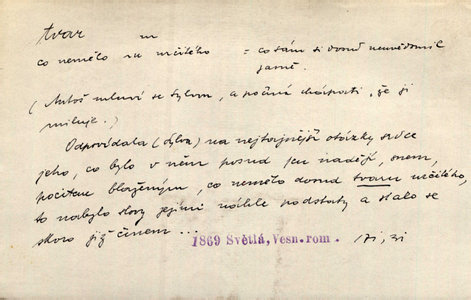 tvar m
co nemělo tvaru určitého = co sám si dosud neuvědomil
jasně.
(Antoš mluví se Sylvou, a počíná chápati, že ji
miluje.)
Odpovídala (Sylva) na nejtajnější otázky srdce
jeho, co bylo v něm posud jen nadějí, onem,
pocitem blaženým, co nemělo dosud tvaru určitého,
to nabylo slovy jejími náhle podstaty a stalo se
skoro již činem ...
1869 Světlá, Vesn. rom. 171, 31